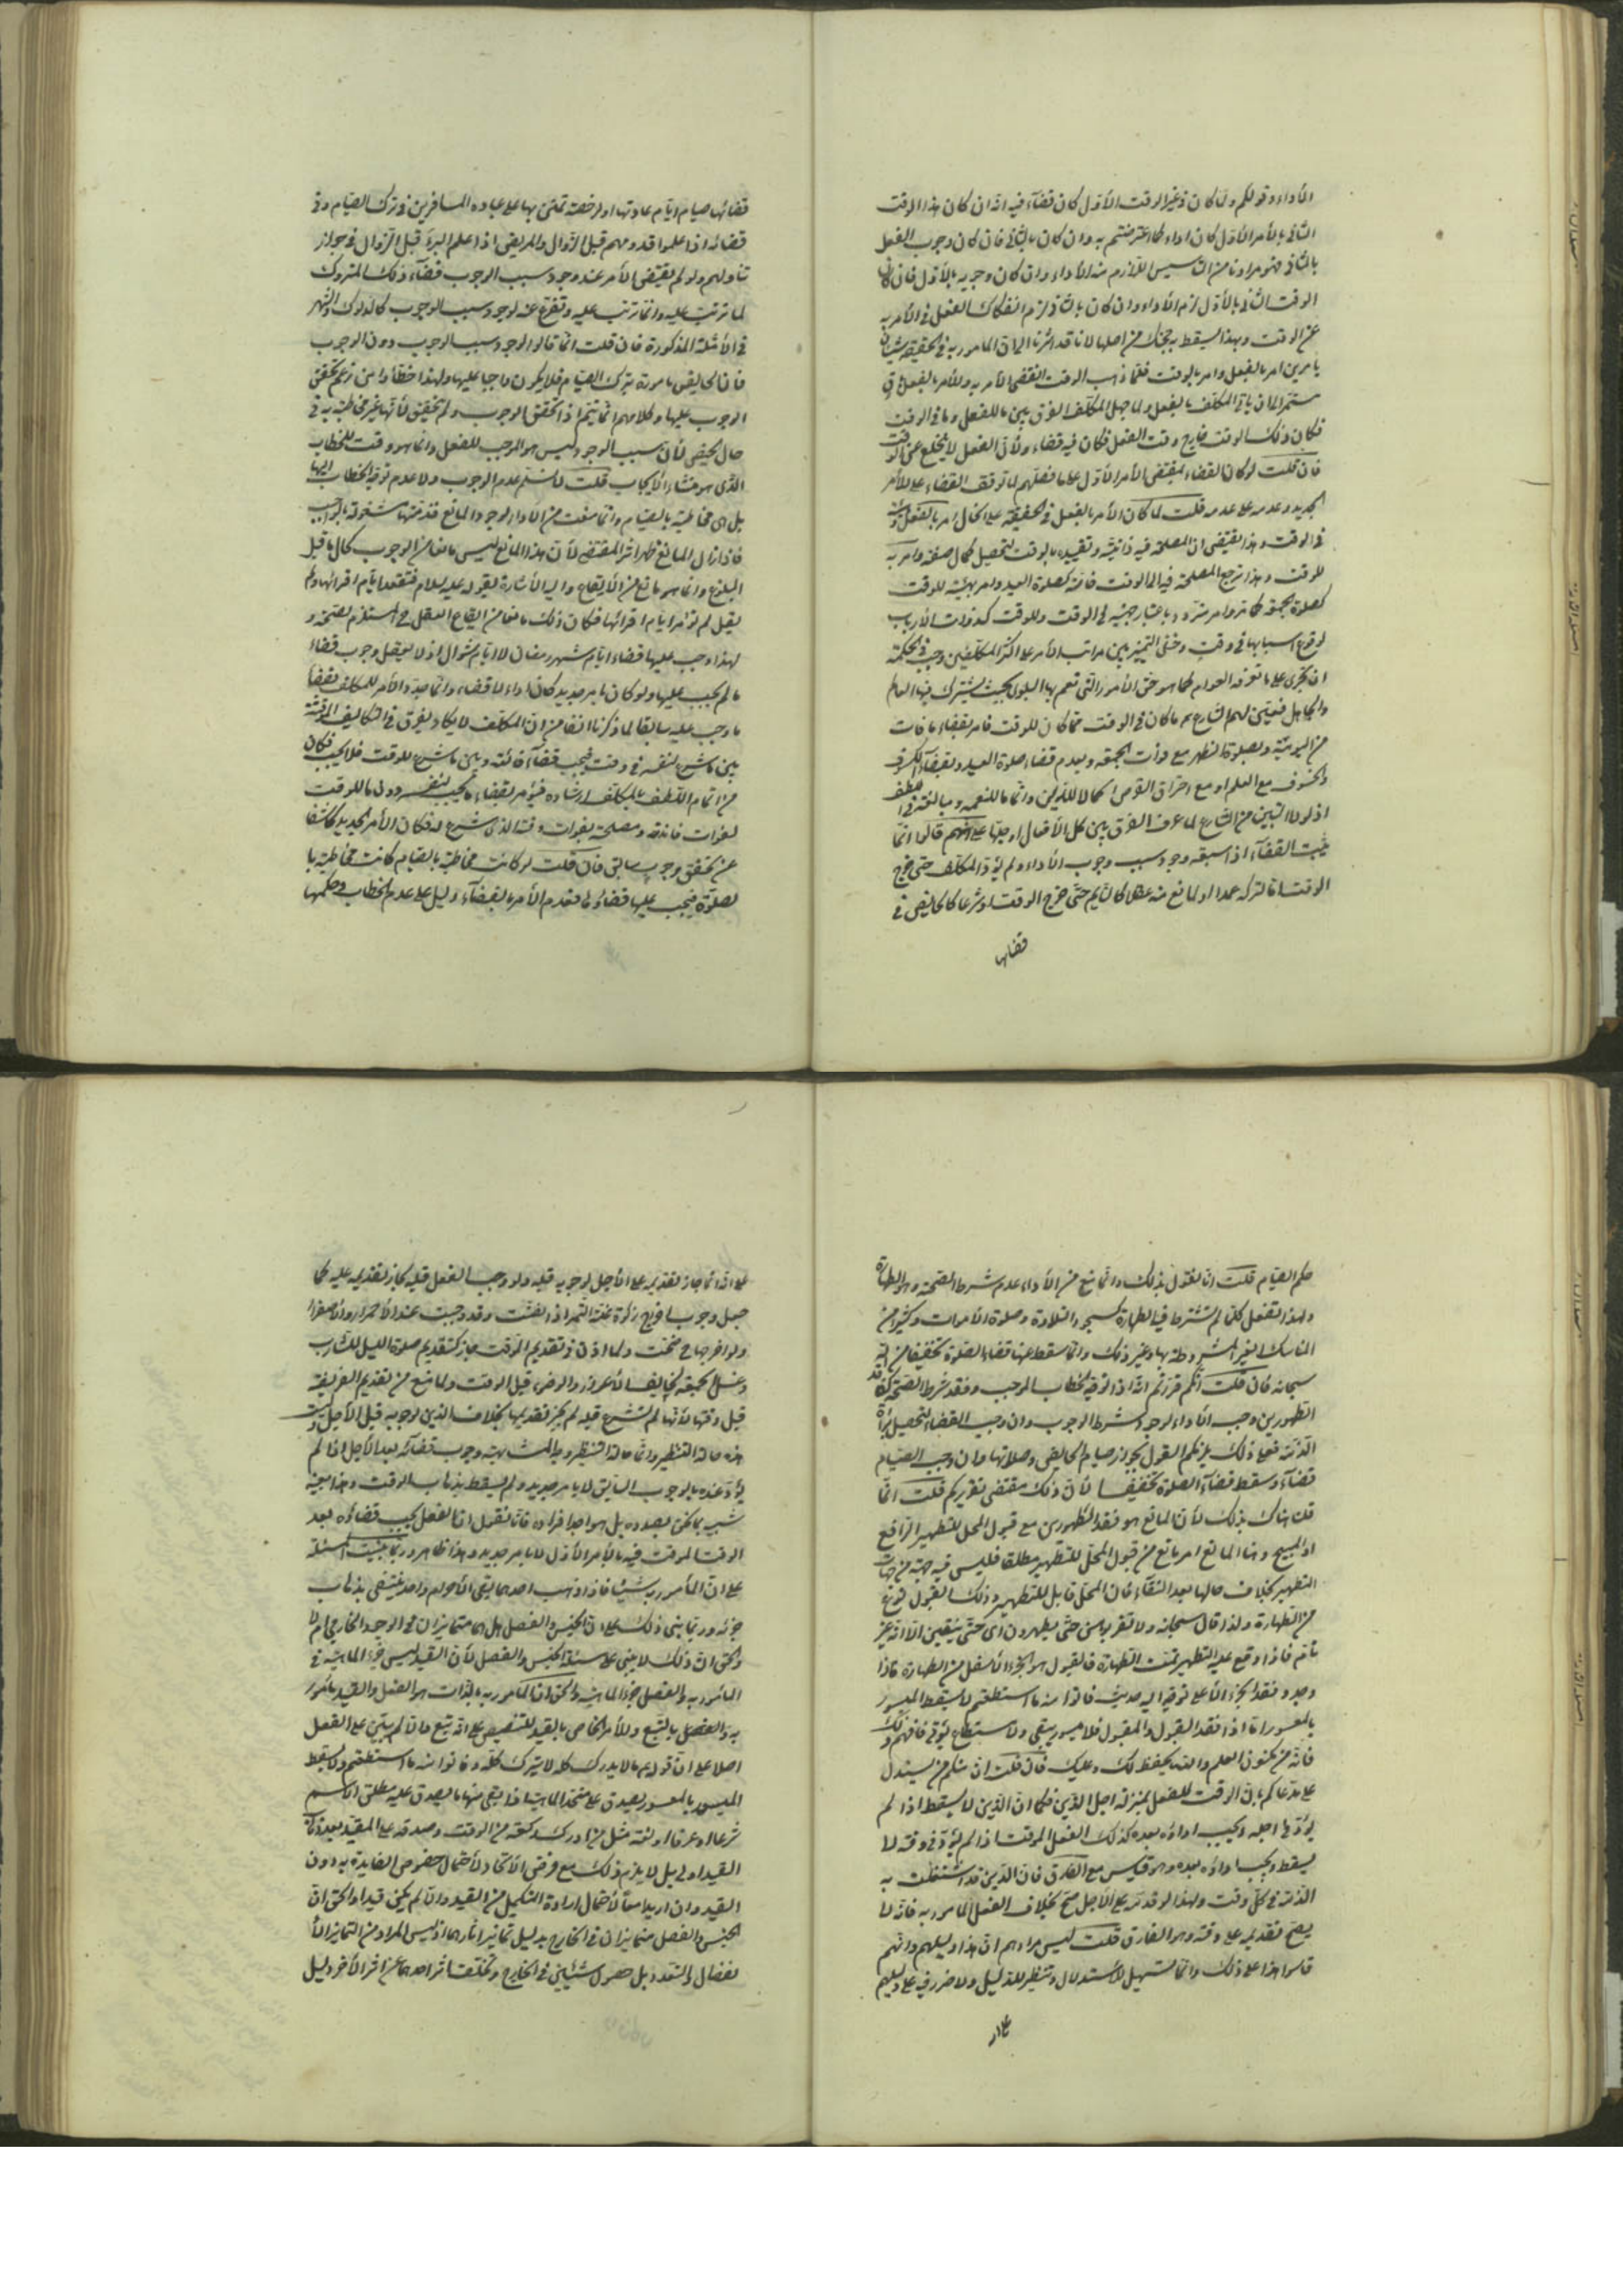 الأداء وقولكم ولما كان في غير الوقت الأول كان قضاء فيه انه ان كان هذا الوقت
الثاني بالأمر الأول كان اداء كما اعترضتم به وان كان بالثاني فان كان وجوب الفعل
بالثاني فهو مرادنا من التأسيس اللازم منه الأداء وان كان وجوبه بالأول فان كان
الوقت الثاني بالأول لزم الأداء وان كان بالثاني لزم انفكاك الفعل في الأمر به
عن الوقت وبهذا يسقط بحثك من اصلها لانا قد اشرنا الى ان المأمور به في الحقيقة شيئان
بأمرين امر بالفعل وامر بالوقت فلما ذهب الوقت انقضى الأمر به والأمر بالفعل باق
مستمر الى ان يأتي المكلف بالفعل ولما جهل المكلف الفرق بين ما للفعل وما في الوقت
فكان ذلك الوقت خارج وقت الفعل فكان فيه قضاء ولأن الفعل لا يخلع عن الوقت
فان قلت لو كان القضاء بمقتضى الأمر الأول على ما فصلتم لما توقف القضاء على الأمر
الجديد وعدمه على عدمه قلت لما كان الأمر بالفعل في الحقيقة على الحال امر بالفعل
في الوقت وهذا يقتضي ان المصلحة فيه ذاتية وتقييده بالوقت لتحصيل كمال صفة وامر به
للوقت وهذا ترجع المصلحة فيه الى الوقت خاصة كصلوة العيد وامر بهيئة للوقت
كصلوة الجمعة كما مر وامر متردد باعتبار جهتيه في الوقت وللوقت كذوات الأرباب
لوقوع اسبابها في وقت وخفي التمييز بين مراتب الأمر على اكثر المكلفين وجب في الحكمة
ان تجرى على ما تعرفه العوام كما هو حق الأمور التي تعم بها البلوى بحيث يشترك فيها العالم
والجاهل فيبين لهم الشارع ع ما كان في الوقت مما كان للوقت فامر بقضاء ما فات
من اليومية وبصلوة الظهر مع فوات الجمعة وبعدم قضاء صلوة العيد وبقضاء الكسوف
والخسوف مع العلم او مع احتراق القرص اكمالا للدين واتماما للنعمة ومبالغة في اللطف
اذ لولا التبيين من الشارع لما عرف الفرق بين كل الأفعال او جلها على انهم قالوا انما
يثبت القضاء اذا سبقه وجود سبب وجوب الأداء ولم يؤد المكلف حتى خرج
الوقت اما لتركه عمدا او لمانع منه عقلا كالنايم حتى خرج الوقت او شرعا كالحايض في
قضائها
قضائها صيام ايام عادتها او لرخصة تمنن بها على عباده المسافرين في ترك الصيام وفي
قضائه اذا علموا قدومهم قبل الزوال والمريض اذا علم البرء قبل الزوال في جواز
تناولهم ولو لم يقتض الأمر عند وجود سبب الوجوب قضاء ذلك المتروك
لما ترتب عليه وانما ترتب عليه وتفرع عنه لوجود سبب الوجوب كالدلوك والشهر
في الأمثلة المذكورة فان قلت انما قالوا لوجود سبب الوجوب دون الوجوب
فان الحايض مأمورة بترك الصيام فلا يكون واجبا عليها ولهذا خطأوا من زعم تحقق
الوجوب عليها وكلامهم انما يتم اذا تحقق الوجوب ولم يتحقق لأنها غير مخاطبة به في
حال الحيض لأن سبب الوجود ليس هو الموجب للفعل وانما هو وقت للخطاب
الذي هو منشاء الايجاب قلت لا نسلم عدم الوجوب ولا عدم توجه الخطاب اليها
بل هي مخاطبة بالصيام وانما منعت من الأداء لوجود المانع فذمتها مشغولة بالواجب
فاذا زال المانع ظهر اثر المقتضي لأن هذا المانع ليس مانعا من الوجوب كمال ما قبل
البلوغ وانما هو مانع من الايقاع واليه الاشارة بقوله عليه السلام فتقعد ايام اقرائها ولم
يقل لم تؤمر ايام اقرائها فكان ذلك مانعا من ايقاع الفعل في المستلزم لصحته و
لهذا وجب عليها قضاء ايام شهر رمضان لا ايام شوال اذ لا يعقل وجوب قضاء
ما لم يجب عليها ولو كان بامر جديد كان اداء لا قضاء وانما جدد الأمر للمكلف بقضاء
ما وجب عليه سابقا لما ذكرنا انفا من ان المكلف لا يكاد يفرق في التكاليف الموقتة
بين ما شرع لنفسه في وقت فيجب قضاء فائته وبين ما شرع للوقت فلا يجب فكان
من اتمام اللطف بالمكلف ارشاده فيؤمر بقضاء ما يجب لنفسه دون ما للوقت
لفوات فائدته ومصلحته بفوات وقته الذي شرع له فكان الأمر الجديد كاشفا
عن تحقق وجوب سابق فان قلت لو كانت مخاطبة بالصيام كانت مخاطبة با
لصلوة فيجب عليها قضاؤها فعدم الأمر بالقضاء دليل على عدم الخطاب وحكمها
حكم الصيام قلت انا نقول بذلك وانما منع من الأداء عدم شرط الصحة وهو الطهارة
ولهذا تفعل كلما لم تشترط فيه الطهارة كسجود التلاوة وصلوة الأموات وكثير من
المناسك الغير المشروطة بها وغير ذلك وانما سقط عنها قضاء الصلوة تخفيفا من الله
سبحانه فان قلت انكم قررتم انه اذا توجه الخطاب الموجب وفقد شرط الصحة كفاقد
الطهورين وجب الأداء لوجود شرط الوجوب وان وجب القضاء لتحصيل براءة
الذمة فعلى ذلك يلزمكم القول بجواز صيام الحايض وصلاتها وان وجب الصيام
قضاء وسقط قضاء الصلوة تخفيفا لأن ذلك مقتضى تقريركم قلت انما
قلنا هناك بذلك لأن المانع هو فقد الطهورين مع قبول المحل للتطهير الرافع
او المبيح وهنا المانع امر مانع من قبول المحل للتطهير مطلقا فليس فيه جهة من جهات
التطهير بخلاف حالها بعد النقاء فان المحل قابل للتطهير وذلك القبول نوع
من الطهارة ولذا قال سبحانه ولا تقربوهن حتى يطهرن اى حتى ينقين الا انه غير
تام فاذا وقع عليه التطهير تمت الطهارة فالقبول هو الجزء الأسفل من الطهارة فاذا
وجد وفقد الجزء الأعلى توجه اليه حديث فأتوا منه ما استطعتم لا يسقط الميسور
بالمعسور اما اذا فقد القبول والمقبول فلا ميسور يبقى ولا مستطاع يؤتى فافهم ذلك
فانه من مكنون العلم والله يحفظ لك وعليك فان قلت ان منكم من يستدل
على مدعاكم بأن الوقت للفعل بمنزلة اجل الدين فكما ان الدين لا يسقط اذا لم
يؤد في اجله ويجب اداؤه بعده كذلك الفعل الموقت اذا لم يؤد في وقته لا
يسقط ويجب اداؤه بعده وهو قياس مع الفارق فان الدين قد اشتغلت به
الذمة في كل وقت ولهذا لو قدمه على الأجل صح بخلاف الفعل المأمور به فانه لا
يصح تقديمه على وقته وهو الفارق قلت ليس مرادهم ان هذا دليلهم وانهم
قاسوا هذا على ذلك وانما تسهيل للاستدلال وتنظير للدليل ولا ضرر فيه على دليلهم
على انه
على انه انما جاز تقديمه على الأجل لوجوبه قبله ولو وجب الفعل قبله لجاز تقديمه عليه كما
جعل وجوب اخراج زكوة غلة التمر اذا يبست وقد وجبت عند الاحمرار والاصفرار
ولو اخرجها ح صحت ولما اذن في تقديم الموقت جاز كتقديم صلوة الليل للشاب
وغسل الجمعة لخايف الاعواز والوضوء قبل الوقت ولما منع من تقديم الفريضة
قبل وقتها لأنها لم تشرع قبله لم يجز تقديمها بخلاف الدين لوجوبه قبل الأجل وليست
هذه حالة التنظير وانما حالة التنظير والمشابهة وجوب قضائه بعد الأجل اذا لم
يؤد عنده بالوجوب السابق لا بامر جديد ولم يسقط بذهاب الوقت وهذا بعينه
شبيه بما نحن بصدده بل هو احد افراده فانا نقول ان الفعل يجب قضاؤه بعد
الوقت الموقت فيه بالأمر الأول لا بامر جديد وهذا ظاهر وربما بنيت المسئلة
على ان المأمور به شيئان فاذا ذهب احدهما بقي الأخر ام واحد ينتفى بذهاب
جزئه وربما بنى ذلك على ان الجنس والفصل هل هما متمايزان في الوجود الخارجي ام لا
والحق ان ذلك لا يبنى على مسئلة الجنس والفصل لأن القيد ليس جزء الماهية في
المأمور به والفصل جزء الماهية والحق ان المأمور به بالذات هو الفعل والقيد مأمور
به والفصل بالتبع وللأمر الخاص بالقيد للتنصيص على انه تبع وان لم يبتن على الفعل
اصلا على ان قوله ع ما لا يدرك كله لا يترك كله وفأتوا منه ما استطعتم ولا يسقط
الميسور بالمعسور يصدق على متحد الماهية اذا بقى منها ما يصدق عليه مطلق الاسم
شرعا او عرفا او لغة مثل من ادرك ركعة من الوقت وصدقه على المقيد بعد ذهاب
القيد اولى بل لا يلزم ذلك مع فرض الاتحاد لاحتمال خصوص الفايدة به دون
القيد وان اريدا معا لاحتمال ارادة التكميل من القيد وان لم يكن قيدا والحق ان
الجنس والفصل متمايزان في الخارج بدليل تمايز اثارهما اذ ليس المراد من التمايز الا
نفصال والتعدد بل حصول شيئين في الخارج وتخلف اثر احدهما عن اثر الأخر دليل